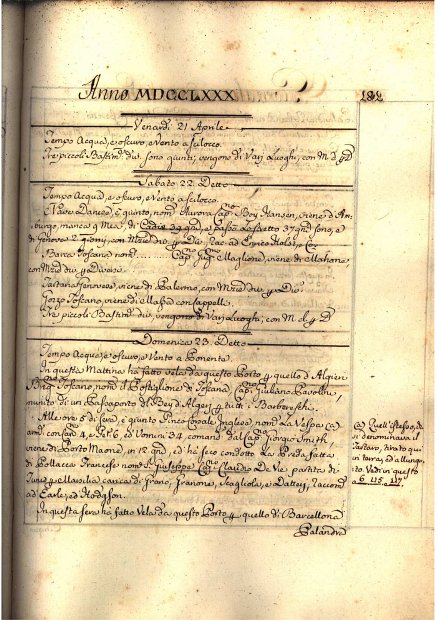 Anno MDCCLXXX
Venardi 21 Aprile
Tempo Acqua, e oscuro, e Vento a scilocco.
Tre piccoli Bastim. div. sono giunti; vengono di Varj Luoghi, con M. d. p D.
Sabato 22. Detto
Tempo Acqua, e oscuro, e Vento a scilocco.
Nave Danese, è giunto, nom. Aurora Cap. Boy Hansen, viene d'Am-
burgo, manca 9 Mesi, di Cadice 39 gni, e passò Lo Stretto 37 gni sono, e
di Genova 2 giorni, con Merci div. p Div.
Barca Toscana nom. ....... Cap. Maglione, viene di Mahone
con Merci div. p Diversi.
Tartana Genovese, viene di Palermo, con Merci div. p Div.
Gozo Toscano, viene di Massa con Cappelli.
Tre piccoli Bastim. div., vengono di Varj Luoghi, con M. d. p D.
Domenica 23. Detto
Tempo Acqua, e oscuro, e Vento a Ponente.
In questa Mattina hà fatto vela da questo Porto p quello d'Algieri
Brig. Toscano, nom. il Postiglione di Toscana Cap. Giuliano
munito di un Passaporto del Bey d'Algeri p tutti i Barbereschi.
Alle ore 5 di sera, è giunto Pinco Corsale Inglese nom. La Vespa (a)
arm. con Can. 4, e Pet. 6, ed Uomini 34. comand. dal Cap. Giorgio Smith,
viene di Porto Maone, in 12 gni, ed hà seco condotto La Preda fatta
di Pollacca Francese nom. S. Giuseppe Cap. Claudio De Vie partito di
Tunis p Marsilia carica di Grano, Granone, Scagliola, e Datteri, Raccom.
ad Earle, ed Hodgson.
In questa sera hà fatto Vela da questo Porto p quello di Barcellona
Palandra
(a) Quell'istesso, che
si denominava il
Tartaro, tirato quì
in terra, ed allunga-
to. Vedi in questo
a 6 115 117